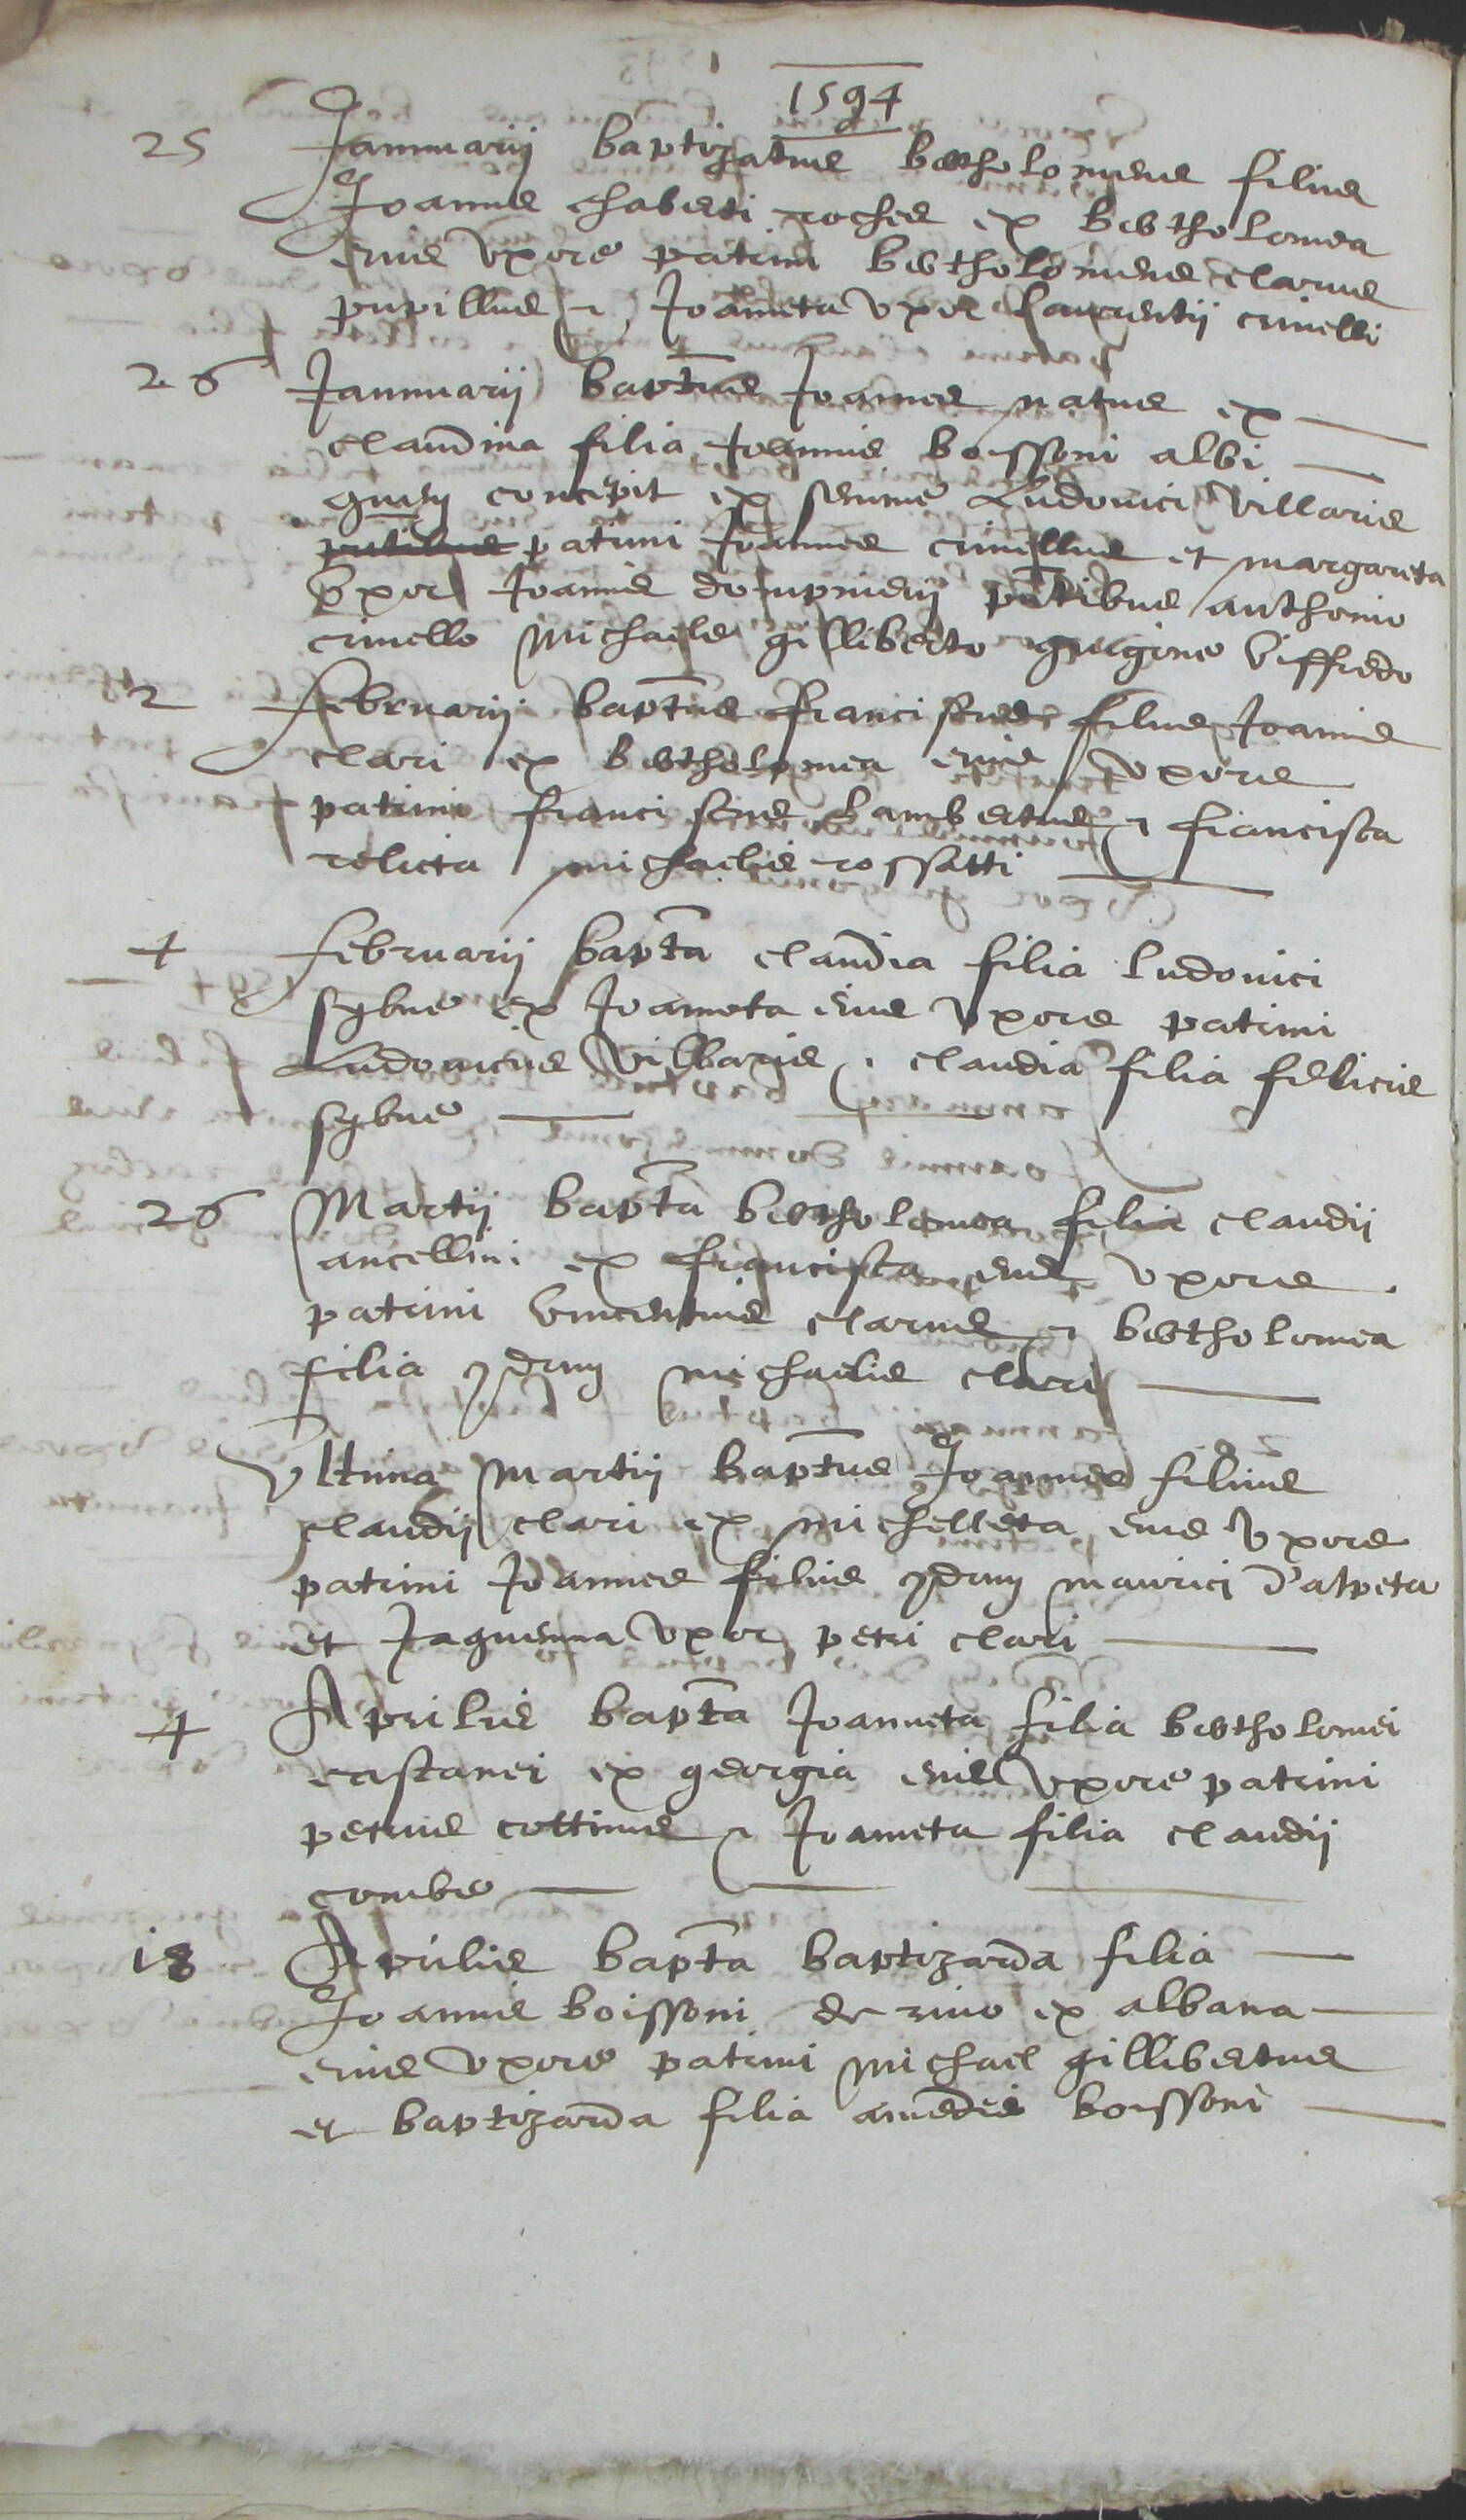 1594
25 Jannuarij baptizatus bertholomeus filius
Joannis chaberti roches ex bertholomea
eius uxore patrini bertholomeus clarus
pupillus et Joanneta uxor laurentii crinelli
26 Jannuarij baptus Joannes natus ex
claudina filia Joannis boissoni albi
quem concepit ex semine Ludovici Villaris
patrini Joannes crinellus et margareta
uxor Joannis pntibus anthonio
crinello Michaele gilliberto guigone viffredo
2 februarij baptus franciscus filius Joannis
clari ex bertholomea eius uxore
patrini franciscus Lambertus et francisca
relicta michaelis rossatti
4 februarij bapta claudia filia ludovici
sybue ex Joanneta eius uxore patrini
Ludovicus Villaris et claudia filia felicis
sybue
26 Martij bapta bertholomea filia claudii
ancellini ex francisca eius uxore
patrini vincentius clarus et bertholomea
filia qdam michaelis clari
Ultima Martij baptus Joannes filius
claudij clari ex michelleta eius uxore
patrini Joannes filius qdam maurici d'alpeta
et Jaquemina uxor petri clari
4 Aprilis bapta Joanneta filia bertholomei
castanei ex georgia eius uxore patrini
petrus cottinus et Joanneta filia claudij
combe
18 Aprilis bapta baptizarda filia
Joannis boissoni de rivo ex albana
eius uxore patrini michael gillibertus
et baptizarda filia amedei boissoni